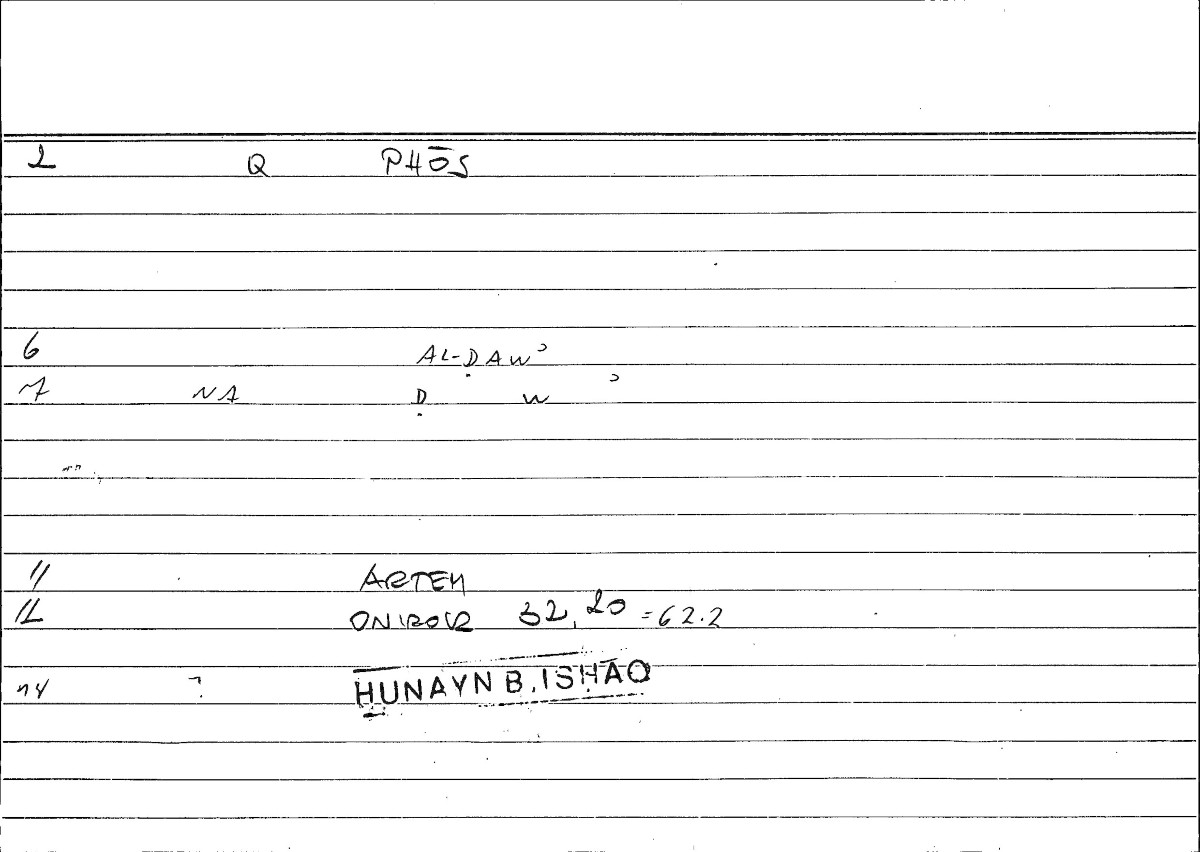 2 Q PHŌS
6 AL-ḌAWʾ
7 NA Ḍ W ʾ
11 ARTEM
12 ONIROCR 32,20 = 62.2
14 ? HUNAYN B. ISHAQ